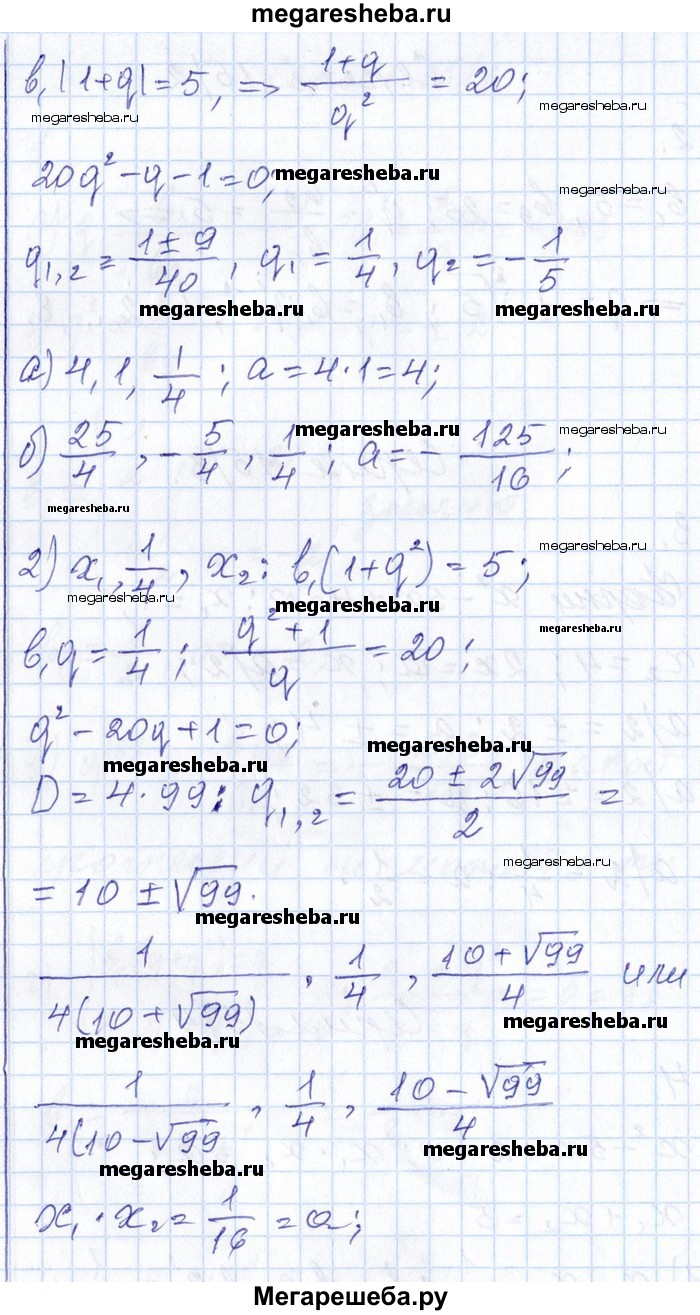 megaresheba.ru
в₁|1+q|=5, ⇒ (1+q)/q² = 20;
megaresheba.ru megaresheba.ru
20q² - q - 1 = 0; megaresheba.ru
megaresheba.ru
q₁,₂ = (1 ± 9)/40, q₁ = 1/4, q₂ = -1/5
megaresheba.ru megaresheba.ru
а) 4, 1, 1/4; a = 4·1 = 4;
megaresheba.ru megaresheba.ru
б) 25/4, -5/4, 1/4; a = -125/16;
megaresheba.ru
2) x₁, 1/4, x₂: в₁(1+q²) = 5;
megaresheba.ru
megaresheba.ru megaresheba.ru
megaresheba.ru
в₁q = 1/4; (q²+1)/q = 20;
q² - 20q + 1 = 0;
megaresheba.ru megaresheba.ru
D = 4·99: q₁,₂ = (20 ± 2√99)/2 =
megaresheba.ru
= 10 ± √99.
megaresheba.ru
1/(4(10+√99)), 1/4, (10+√99)/4 или
megaresheba.ru megaresheba.ru
1/(4(10-√99), 1/4, (10-√99)/4
megaresheba.ru megaresheba.ru
x₁·x₂ = 1/16 = a;
Мегарешеба.ру